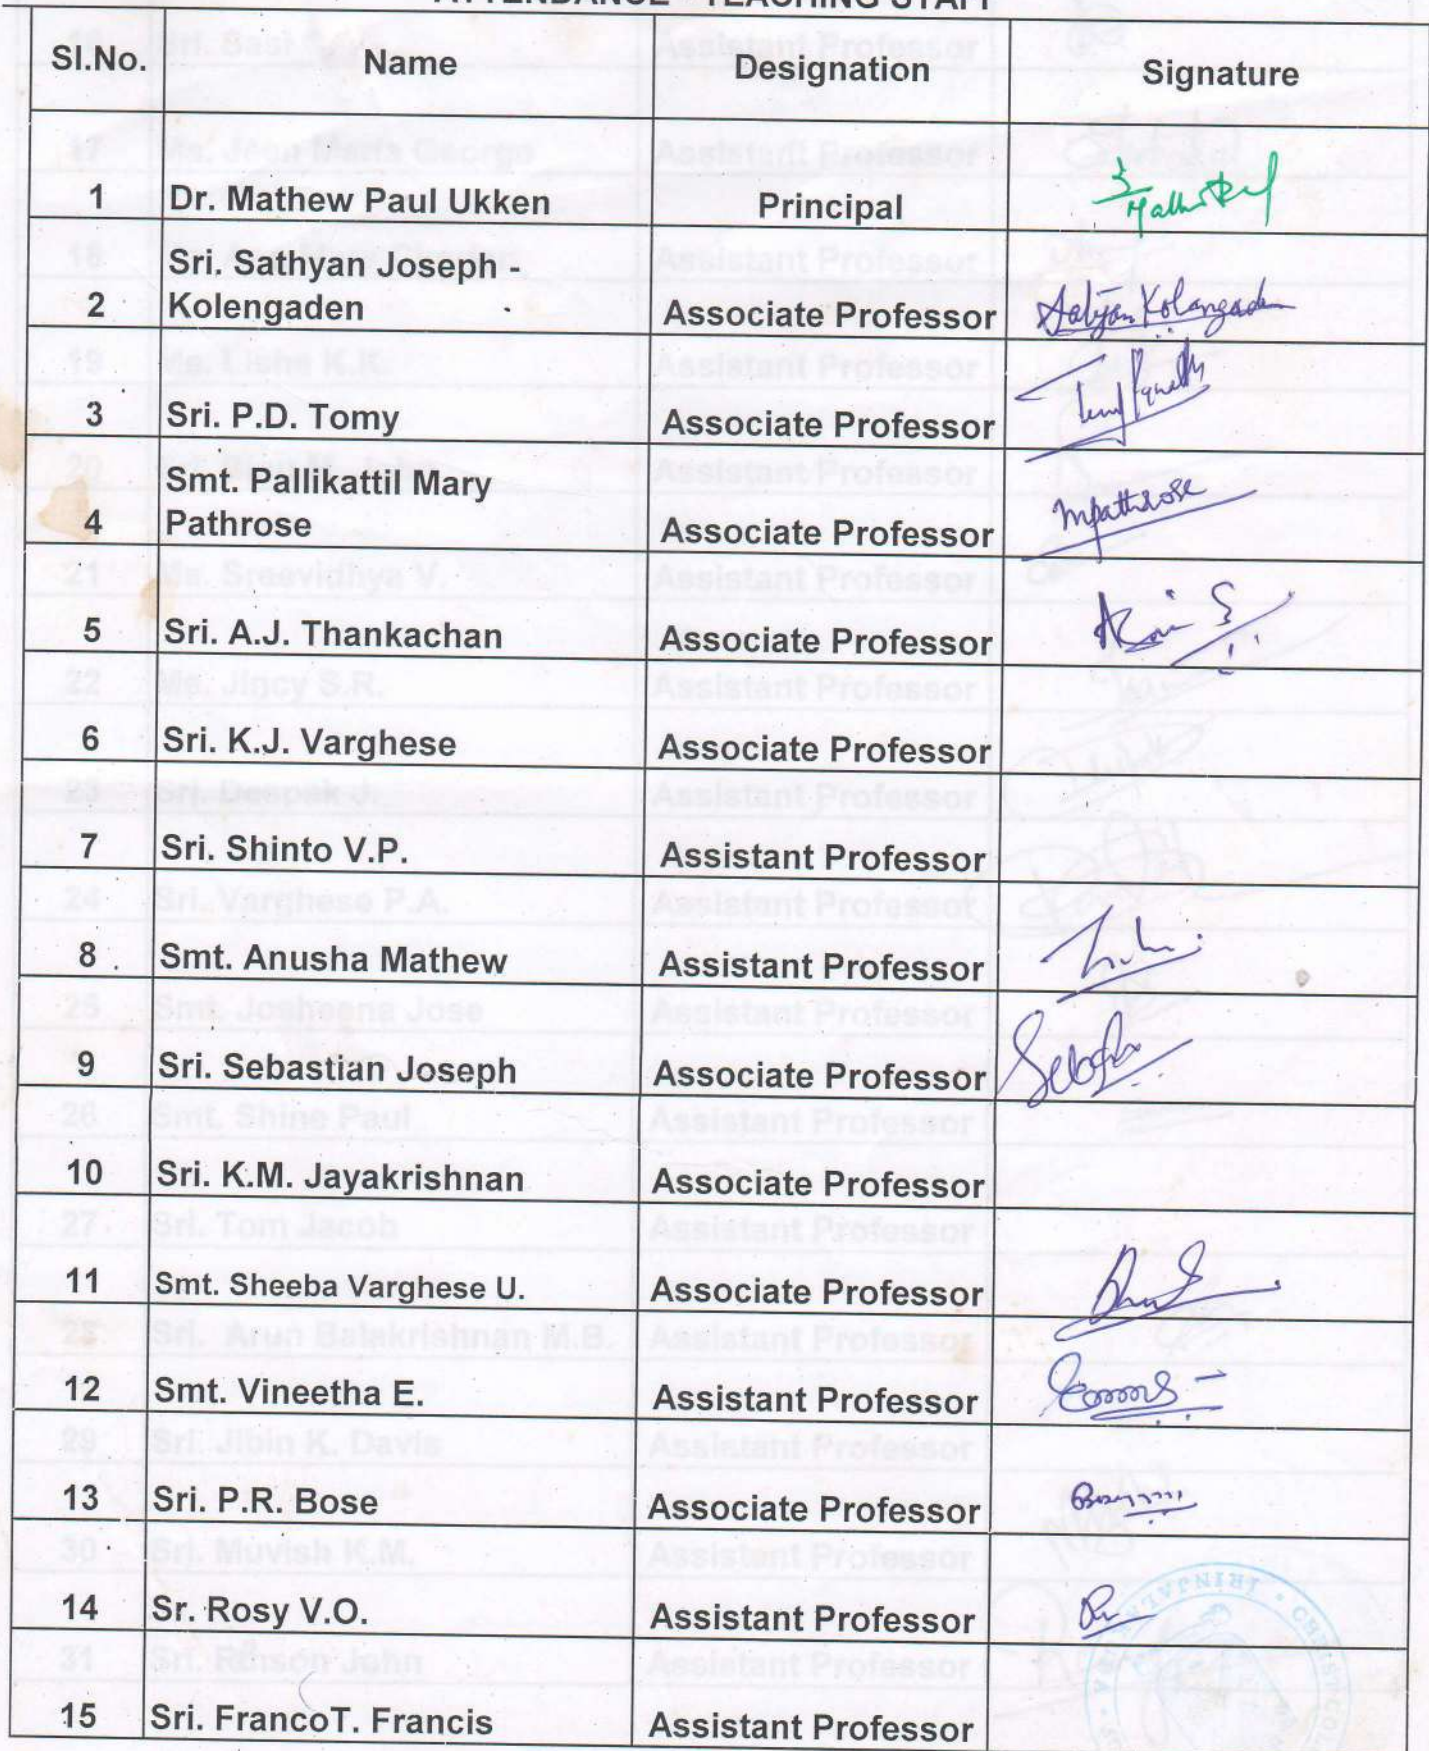 ATTENDANCE - TEACHING STAFF
Sl.No. Name Designation Signature
1 Dr. Mathew Paul Ukken Principal
Sri. Sathyan Joseph -
2 Kolengaden Associate Professor Sathyan Kolangaden
3 Sri. P.D. Tomy Associate Professor
Smt. Pallikattil Mary
4 Pathrose Associate Professor mpathrose
5 Sri. A.J. Thankachan Associate Professor
6 Sri. K.J. Varghese Associate Professor
7 Sri. Shinto V.P. Assistant Professor
8 Smt. Anusha Mathew Assistant Professor
9 Sri. Sebastian Joseph Associate Professor
10 Sri. K.M. Jayakrishnan Associate Professor
11 Smt. Sheeba Varghese U. Associate Professor
12 Smt. Vineetha E. Assistant Professor
13 Sri. P.R. Bose Associate Professor
14 Sr. Rosy V.O. Assistant Professor
15 Sri. FrancoT. Francis Assistant Professor